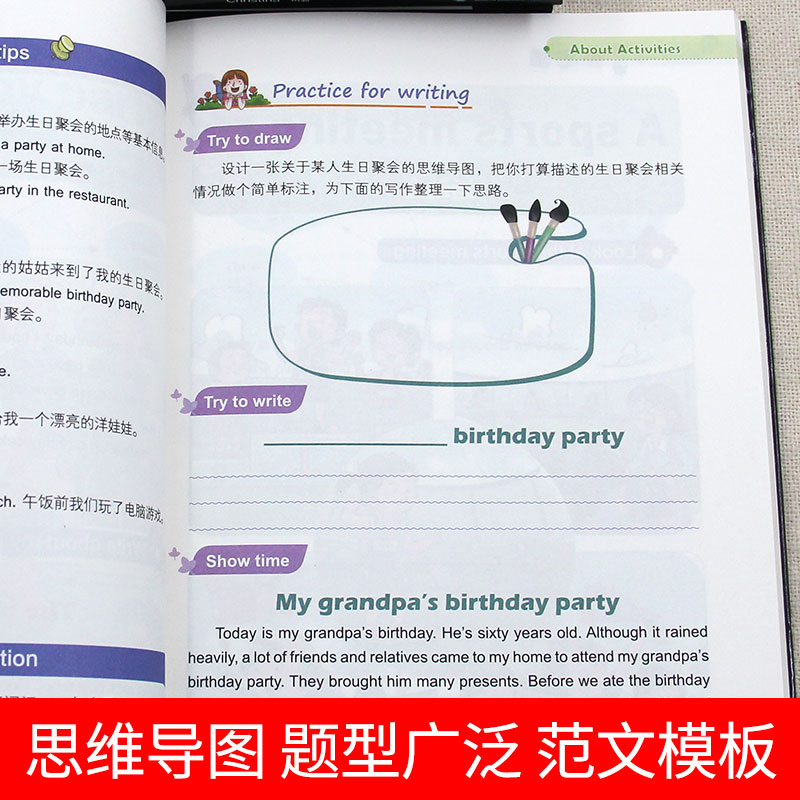 Christina
tips
举办生日聚会的地点等基本信息
a party at home.
一场生日聚会。
arty in the restaurant.
的姑姑来到了我的生日聚会。
emorable birthday party.
聚会。
e.
给我一个漂亮的洋娃娃。
ch. 午饭前我们玩了电脑游戏。
tion
About Activities
Practice for writing
Try to draw
设计一张关于某人生日聚会的思维导图，把你打算描述的生日聚会相关
情况做个简单标注，为下面的写作整理一下思路。
Try to write
birthday party
Show time
My grandpa's birthday party
Today is my grandpa's birthday. He's sixty years old. Although it rained
heavily, a lot of friends and relatives came to my home to attend my grandpa's
birthday party. They brought him many presents. Before we ate the birthday
思维导图 题型广泛 范文模板